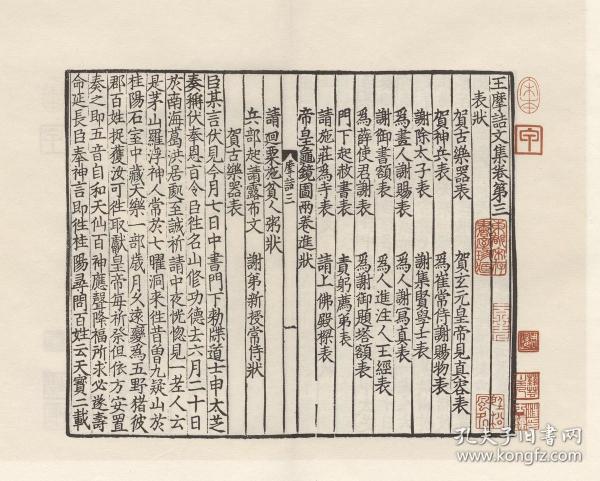 王摩詰文集卷第三
表狀
賀古樂器表 賀玄元皇帝見真容表
賀神兵表 爲崔常侍謝賜物表
謝除太子表 謝集賢學士表
爲畫人謝賜表 爲人謝爲真表
謝御書額表 爲人進注人王經表
爲薛使君謝表 爲謝御題塔額表
門下起赦書表 責躬薦弟表
請施莊爲寺表 請上佛殿樑表
帝皇龜鏡圖兩卷進狀
摩詰三 一
請迴粟施貧人粥狀
兵部起請露布文 謝第新授常侍狀
賀古樂器表
臣某言伏見今月七日中書門下勑牒道士申太芝
奏稱伏奉恩言令臣徃名山修功德去六月二十日
於南海葛洪居處至誠祈請中夜恍惚見一老人云
是茅山羅浮神人常於七曜洞来徃昔曽九疑山於
桂陽石室中藏天樂一部歲月久遠變為五野猪彼
郡百姓捉獲汝可徃取獻皇帝每祈祭但依方安置
奏之即五音自和天仙百神應聲降福所求必遂壽
命延長臣奉神言即徃桂陽尋問百姓云天寳二載
孔夫子旧书网
www.kongfz.com